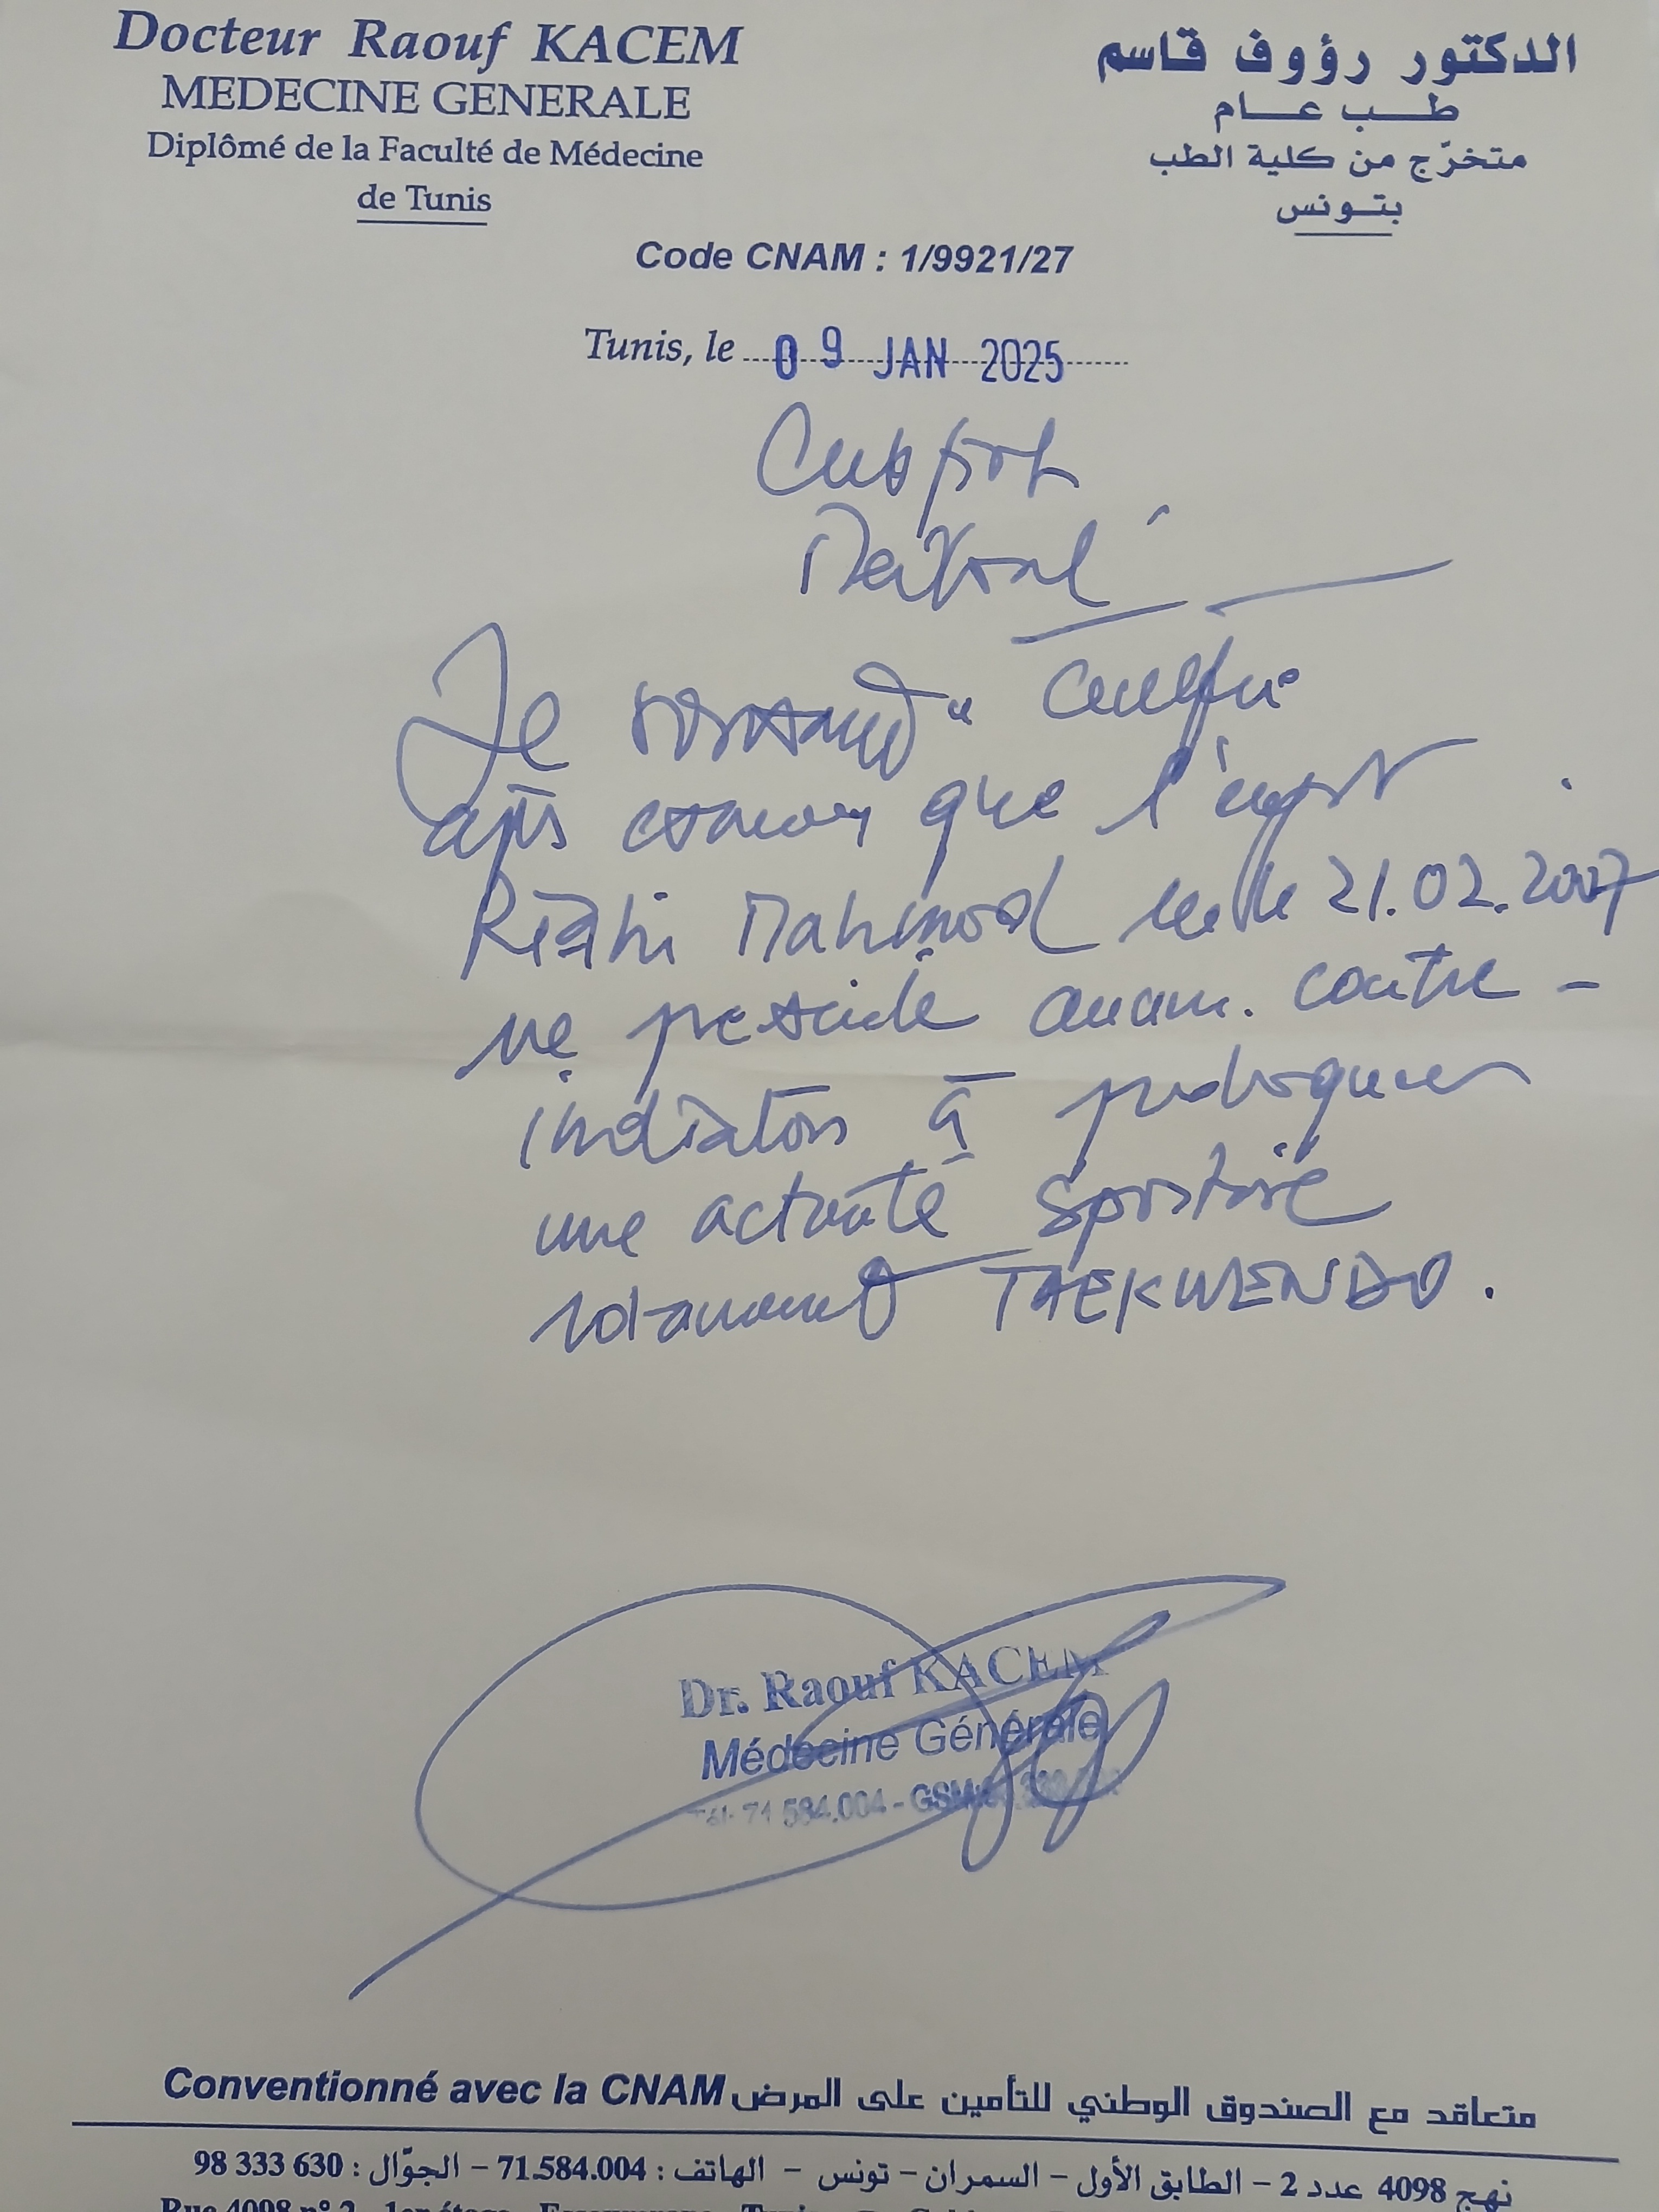 Docteur Raouf KACEM
MEDECINE GENERALE
Diplômé de la Faculté de Médecine
de Tunis
الدكتور رؤوف قاسم
طب عام
متخرّج من كلية الطب
بتونس
Code CNAM : 1/9921/27
Tunis, le 09 JAN 2025
Je certifie
après examen que l'enfant
Riahi Mahmoud né le 21.02.2007
ne présente aucune contre-
indication à pratiquer
une activité sportive
notamment TAEKWENDO.
Dr. Raouf KACEM
Médecine Générale
Tél: 71 584.004 - GSM:
Conventionné avec la CNAM متعاقد مع الصندوق الوطني للتأمين على المرض
نهج 4098 عدد 2 – الطابق الأول – السمران – تونس – الهاتف : 71.584.004 – الجوّال : 98 333 630
Rue 4098 n° 2 1er étage